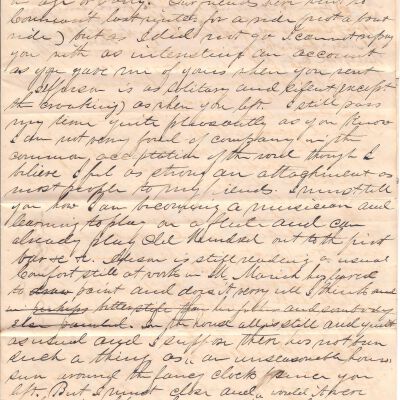 Conneaut last night for a ride (not a boat
ride) but as I did not go I cannot repay
you with as interesting an account
as you gave me of yours when you went
Jefferson is as solitary and silent (except
the croaking) as when you left. I still pass
my time quite pleasantly as you know
I am not very fond of company in the
common acceptation of the word though I
believe I feel as strong an attachment as
most people to my friends. I must tell
you how I am becoming a musician and
learning to play on a flute and can
already play Old Hundred out to the first
bar of it. is still reading as usual
Comfort still at work in the
to draw paint and does it very well I think and
better style than and somebody
else painted. In the house all is still and quiet
as usual and I suppose there has not been
such a thing as "an unseasonable hour"
sun around the fancy clock since you
left. But I must close and would it were